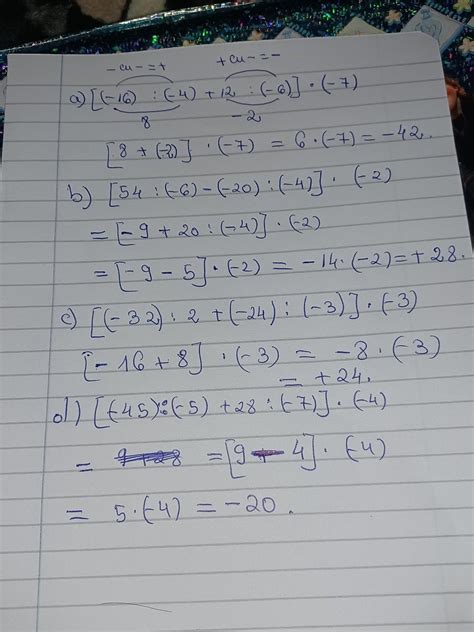 - cu - = +     + cu - = -
a) [(-16) : (-4) + 12 : (-6)] · (-7)
8     -2
[8 + (-2)] · (-7) = 6 · (-7) = -42.
b) [54 : (-6) - (-20) : (-4)] · (-2)
= [-9 + 20 : (-4)] · (-2)
= [-9 - 5] · (-2) = -14 · (-2) = +28.
c) [(-32) : 2 + (-24) : (-3)] · (-3)
[-16 + 8] · (-3) = -8 · (-3)
= +24.
d) [(-45) : (-5) + 28 : (-7)] · (-4)
= = [9 - 4] · (-4)
= 5 · (-4) = -20.